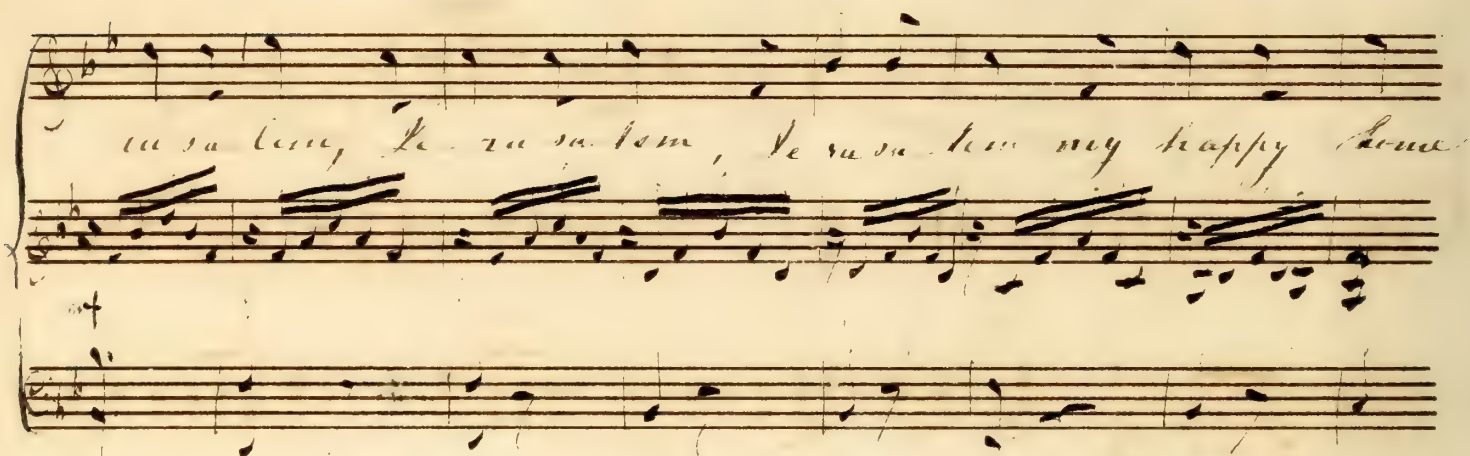 ru sa lem, Je - ru sa lem, Je ru sa lem my happy home
mf